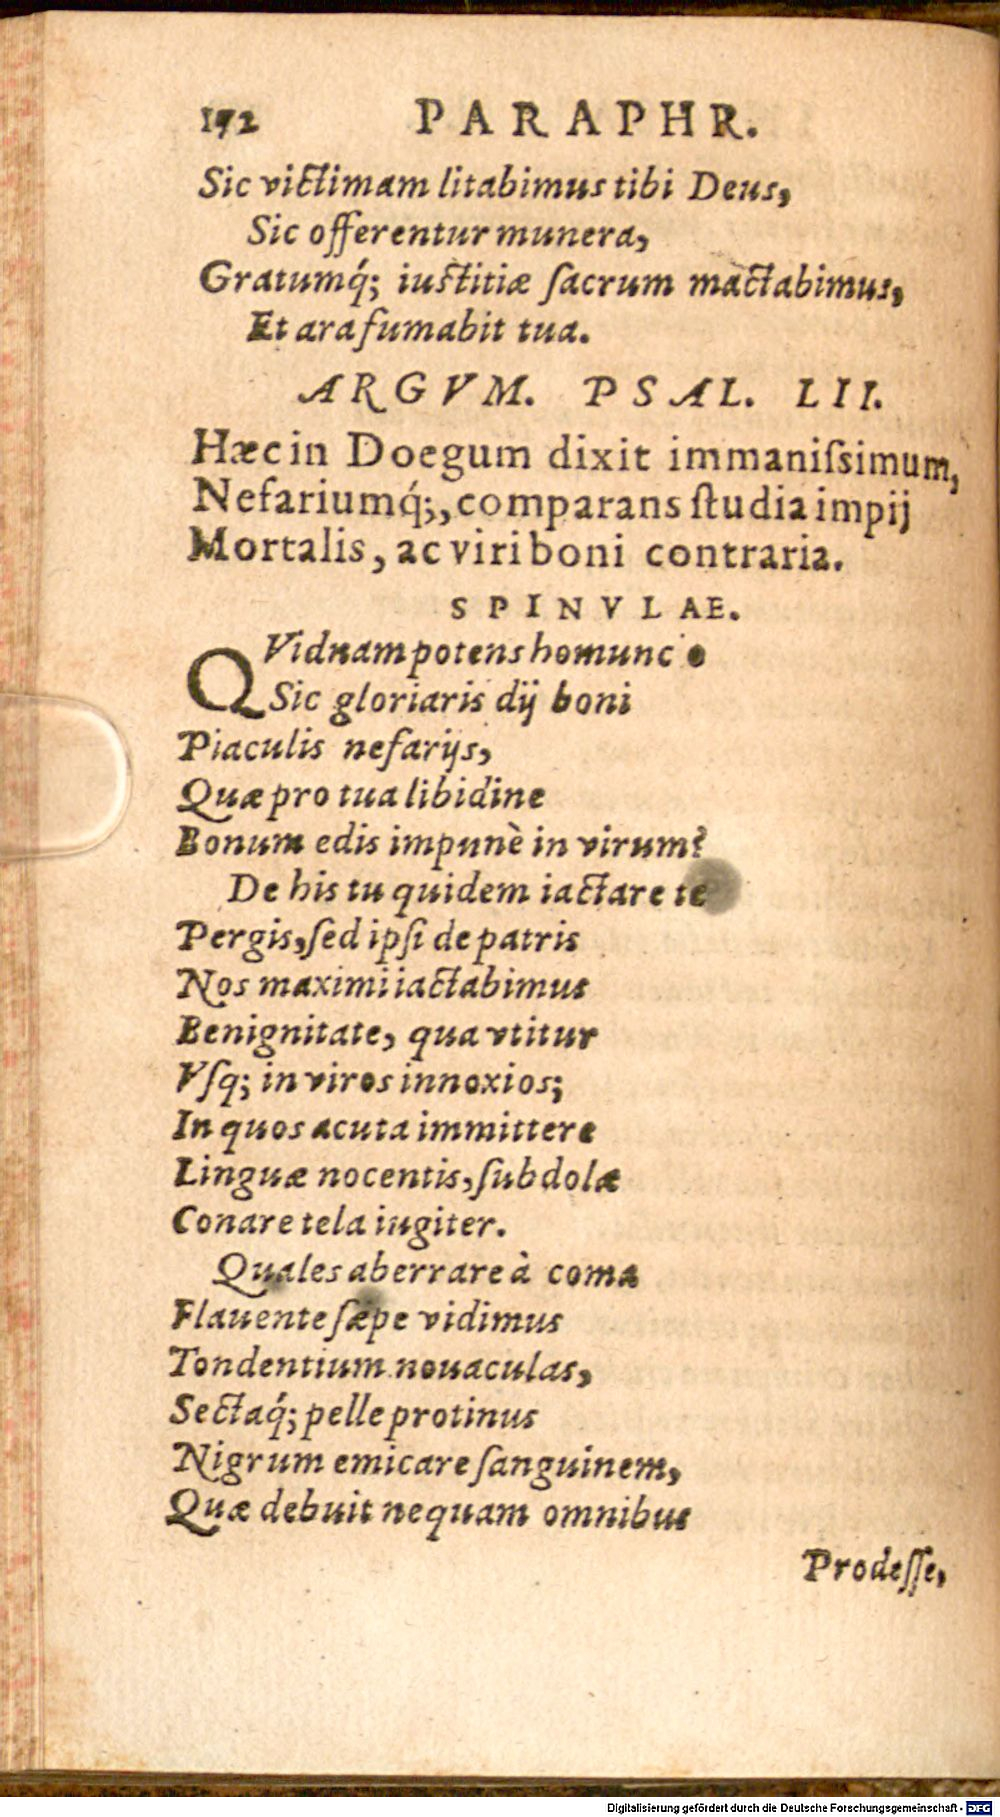 172 PARAPHR.
Sic victimam litabimus tibi Deus,
Sic offerentur munera,
Gratumq́; iustitiæ ſacrum mactabimus,
Et ara fumabit tua.
ARGVM. PSAL. LII.
Hæc in Doegum dixit immaniſsimum,
Nefariumq́;, comparans ſtudia impij
Mortalis, ac viri boni contraria.
SPINVLAE.
QVidnam potens homunc o
Sic gloriaris dij boni
Piaculis nefarijs,
Quæ pro tua libidine
Bonum edis impunè in virum?
De his tu quidem iactare te
Pergis, ſed ipſi de patris
Nos maximi iactabimus
Benignitate, qua vtitur
Vſq; in viros innoxios;
In quos acuta immittere
Linguæ nocentis, ſubdolæ
Conare tela iugiter.
Quales aberrare à coma
Flauente ſæpe vidimus
Tondentium nouaculas,
Sectaq́; pelle protinus
Nigrum emicare ſanguinem,
Quæ debuit nequam omnibus
Prodeſſe,
Digitalisierung gefördert durch die Deutsche Forschungsgemeinschaft - DFG